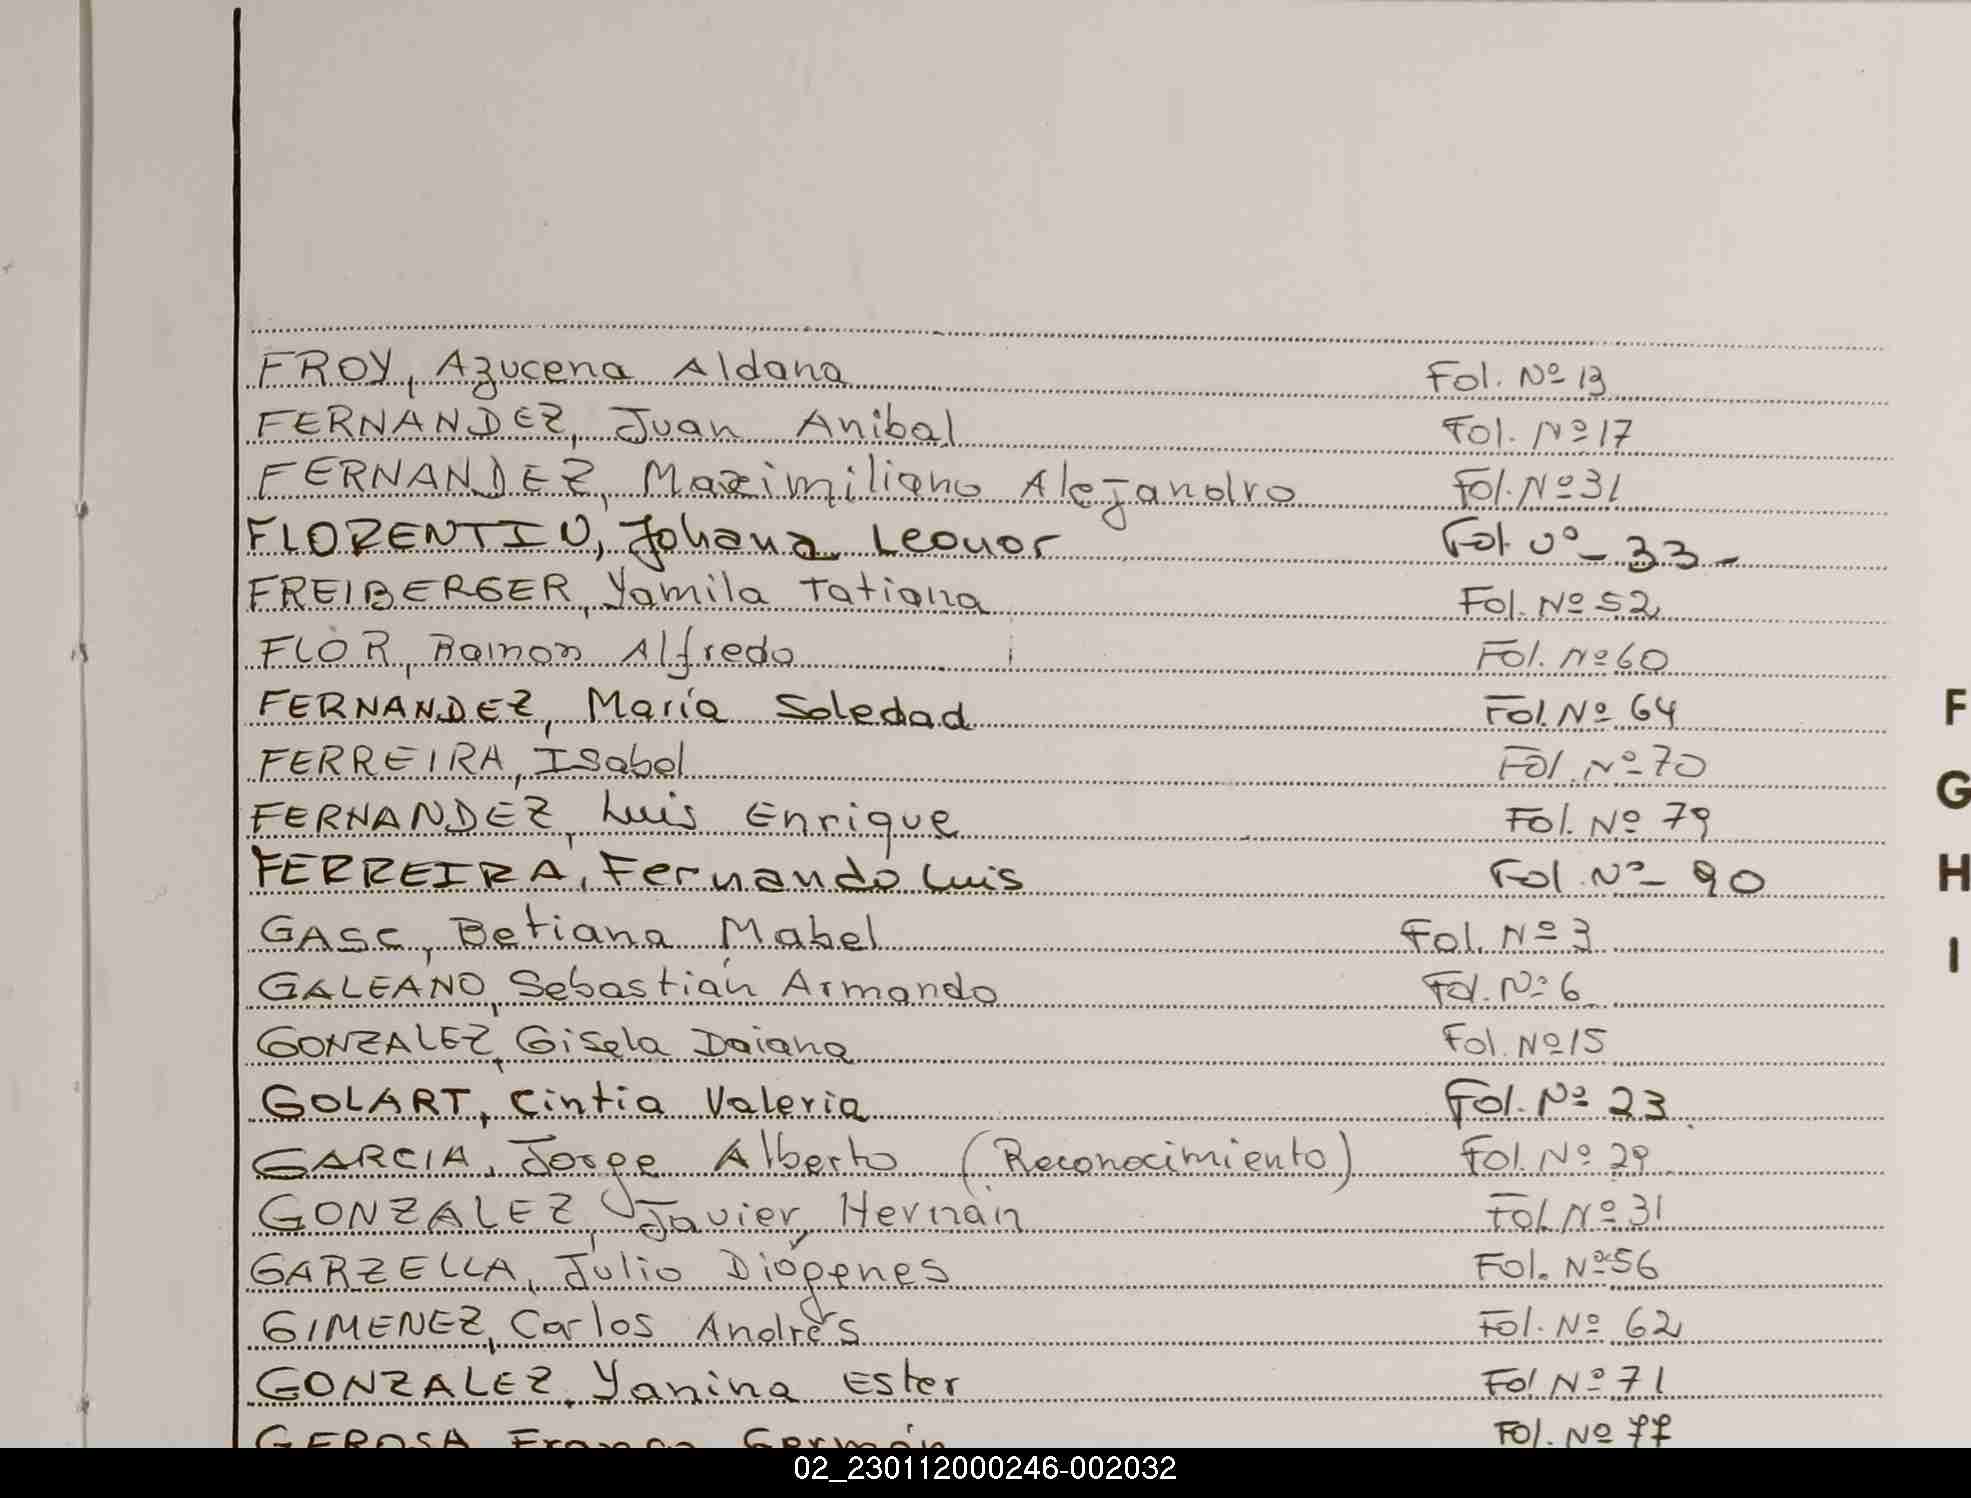 FROY, Azucena Aldana Fol. Nº 13
FERNANDEZ, Juan Anibal Fol. Nº 17
FERNANDEZ, Maximiliano Alejandro Fol. Nº 31
FLORENTIN, Johana Leonor Fol Nº- 33-
FREIBERGER, Yamila Tatiana Fol. Nº 52
FLOR, Ramon Alfredo Fol. Nº 60
FERNANDEZ, María Soledad Fol. Nº 64
FERREIRA, Isabel Fol. Nº 70
FERNANDEZ, Luis Enrique Fol. Nº 79
FERREIRA, Fernando Luis Fol. Nº- 90
F
G
H
I
GASC, Betiana Mabel Fol. Nº 3
GALEANO, Sebastián Armando Fol. Nº 6
GONZALEZ, Gisela Daiana Fol. Nº 15
GOLART, Cintia Valeria Fol. Nº 23
GARCIA, Jorge Alberto (Reconocimiento) Fol. Nº 29
GONZALEZ, Javier Hernán Fol. Nº 31
GARZELLA, Julio Diógenes Fol. Nº 56
GIMENEZ, Carlos Andrés Fol. Nº 62
GONZALEZ, Yanina Ester Fol Nº 71
GEROSA, Franco Germán Fol. Nº 77
02_230112000246-002032